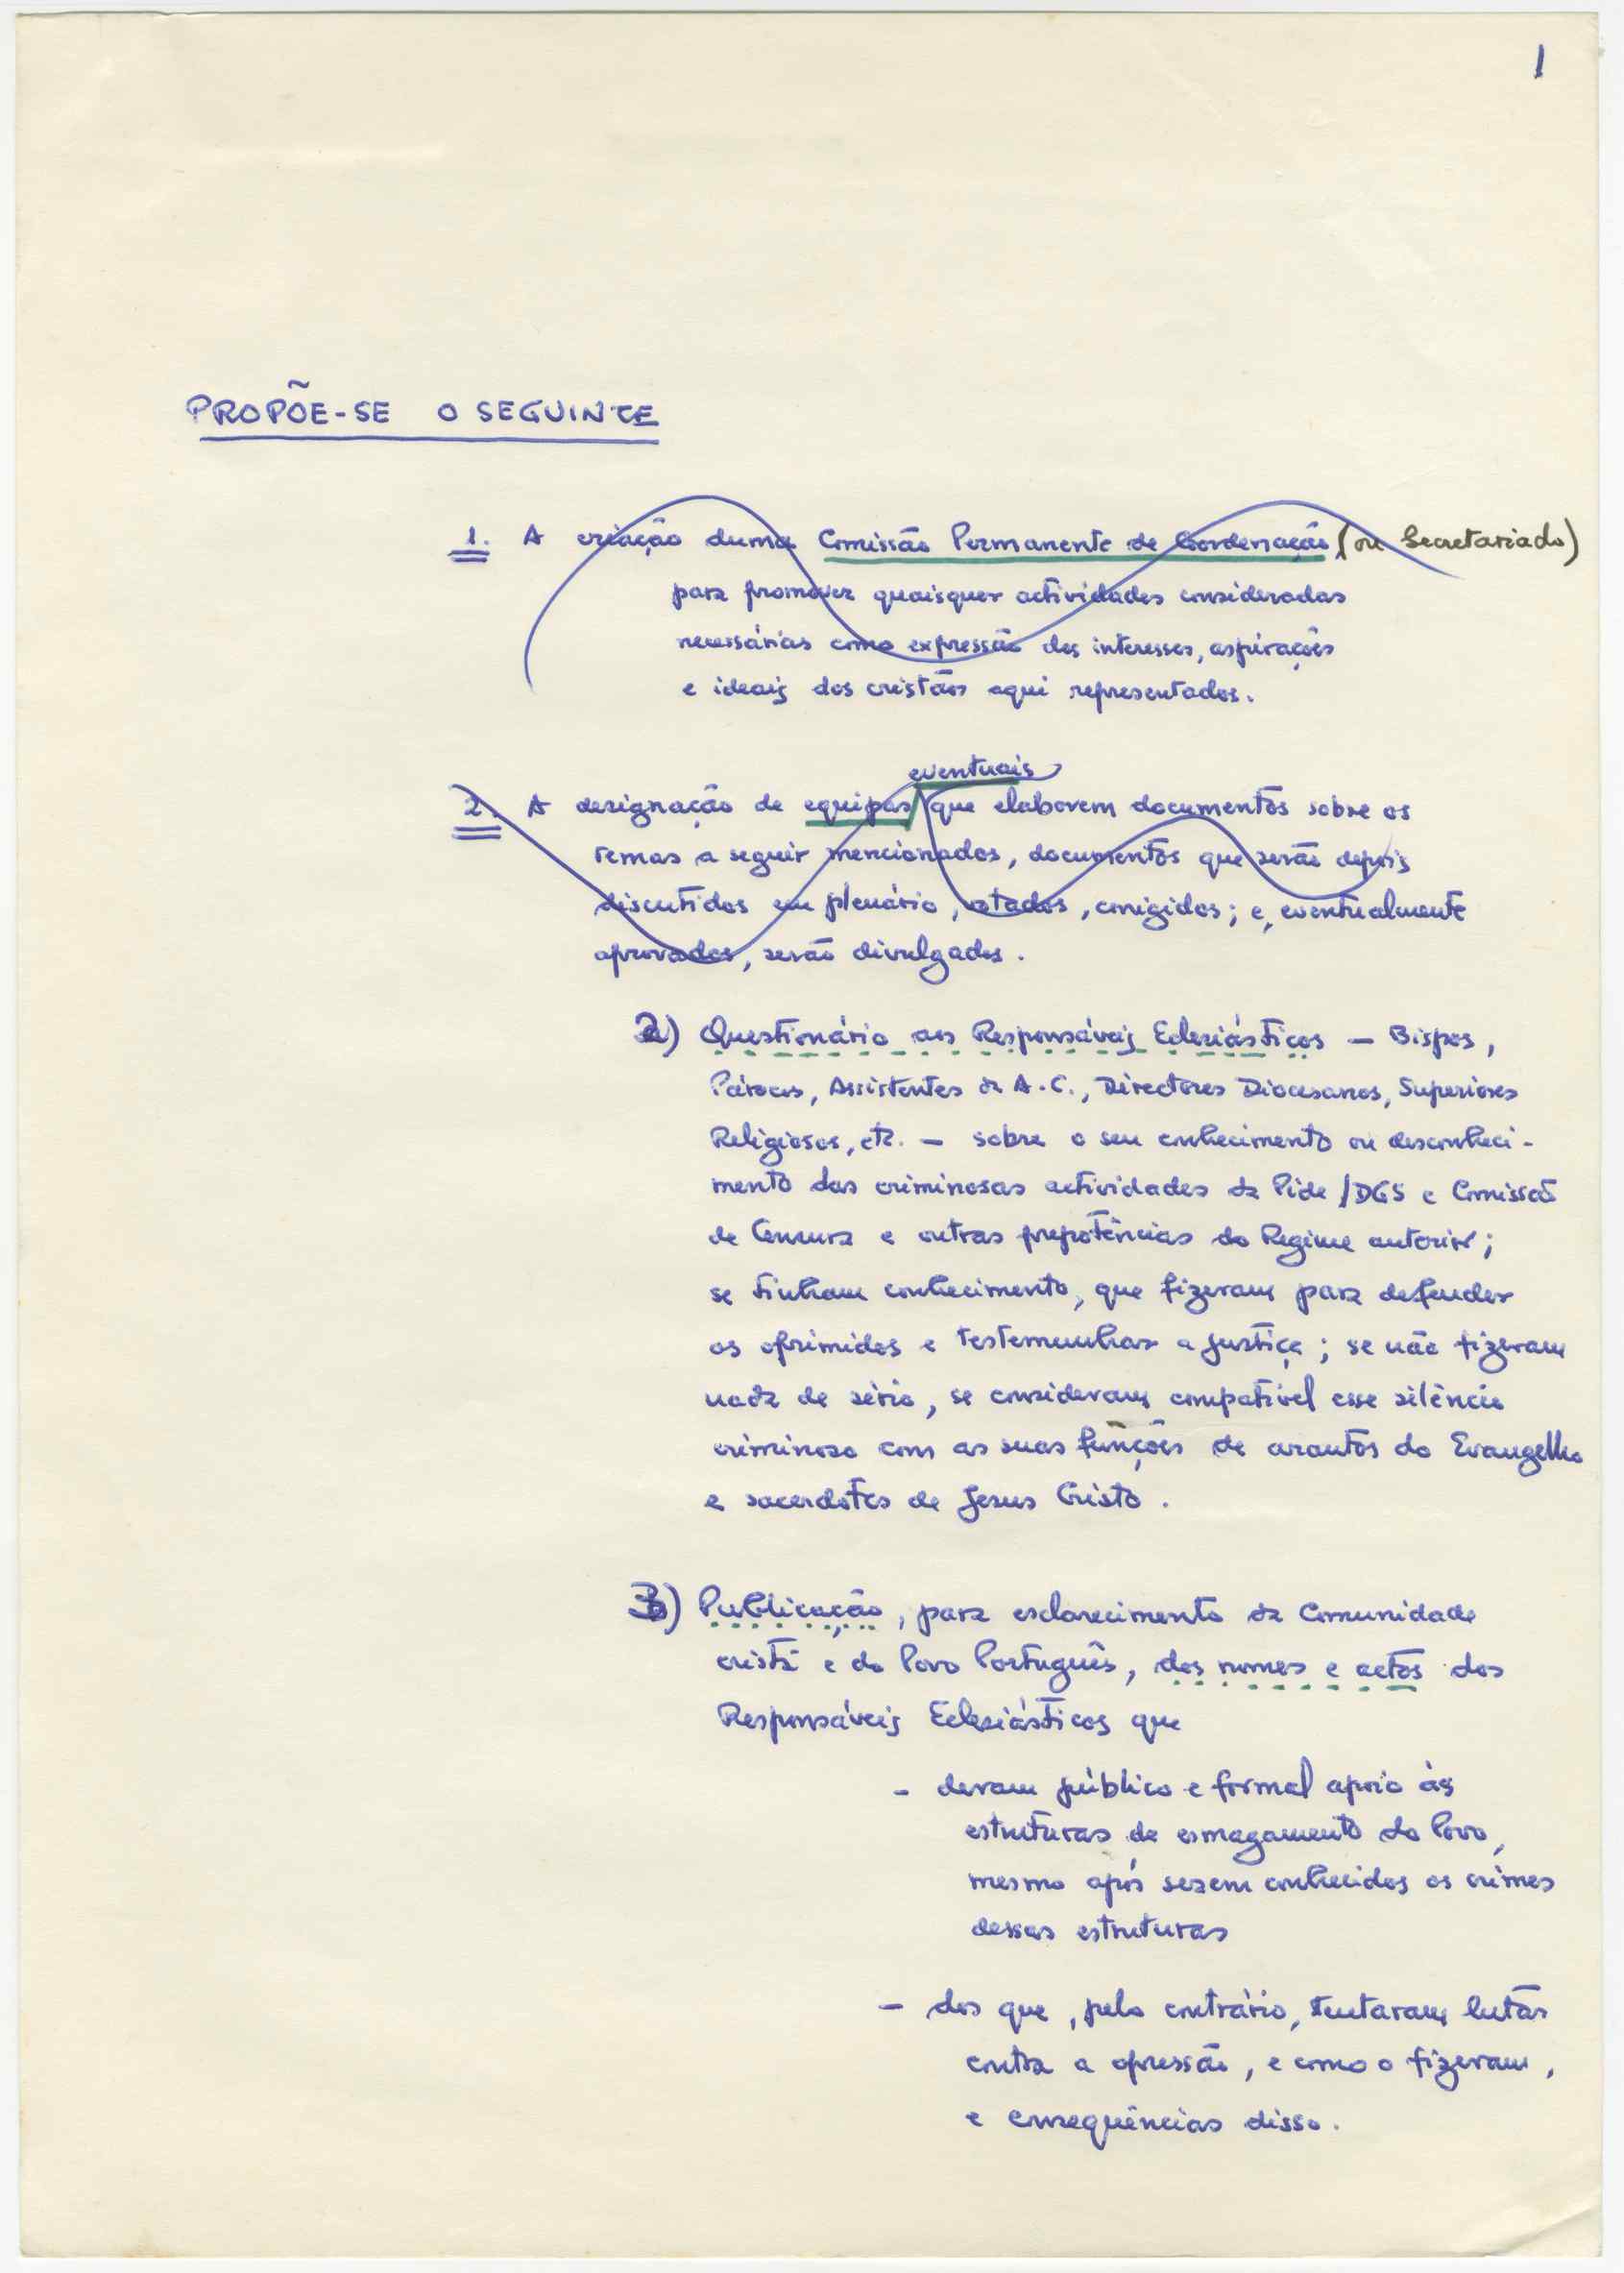 1
PROPÕE-SE O SEGUINTE
1. A criação duma Comissão Permanente de Coordenação (ou Secretariado)
para promover quaisquer actividades consideradas
necessárias como expressão dos interesses, aspirações
e ideais dos cristãos aqui representados.
eventuais
2. A designação de equipas que elaborem documentos sobre os
temas a seguir mencionados, documentos que serão depois
discutidos em plenário, votados, corrigidos; e, eventualmente
aprovados, serão divulgados.
2) Questionário aos Responsáveis Eclesiásticos — Bispos,
Párocos, Assistentes da A.C., Directores Diocesanos, Superiores
Religiosos, etc. — sobre o seu conhecimento ou desconheci-
mento das criminosas actividades da Pide/DGS e Comissão
de Censura e outras prepotências do Regime anterior;
se tinham conhecimento, que fizeram para defender
os oprimidos e testemunhar a justiça; se não fizeram
nada de sério, se consideram compatível esse silêncio
criminoso com as suas funções de arautos do Evangelho
e sacerdotes de Jesus Cristo.
3) Publicação, para esclarecimento da Comunidade
cristã e do Povo Português, dos nomes e actos dos
Responsáveis Eclesiásticos que
- deram público e formal apoio às
estruturas de esmagamento do Povo,
mesmo após serem conhecidos os crimes
dessas estruturas
- dos que, pelo contrário, tentaram lutar
contra a opressão, e como o fizeram,
e consequências disso.